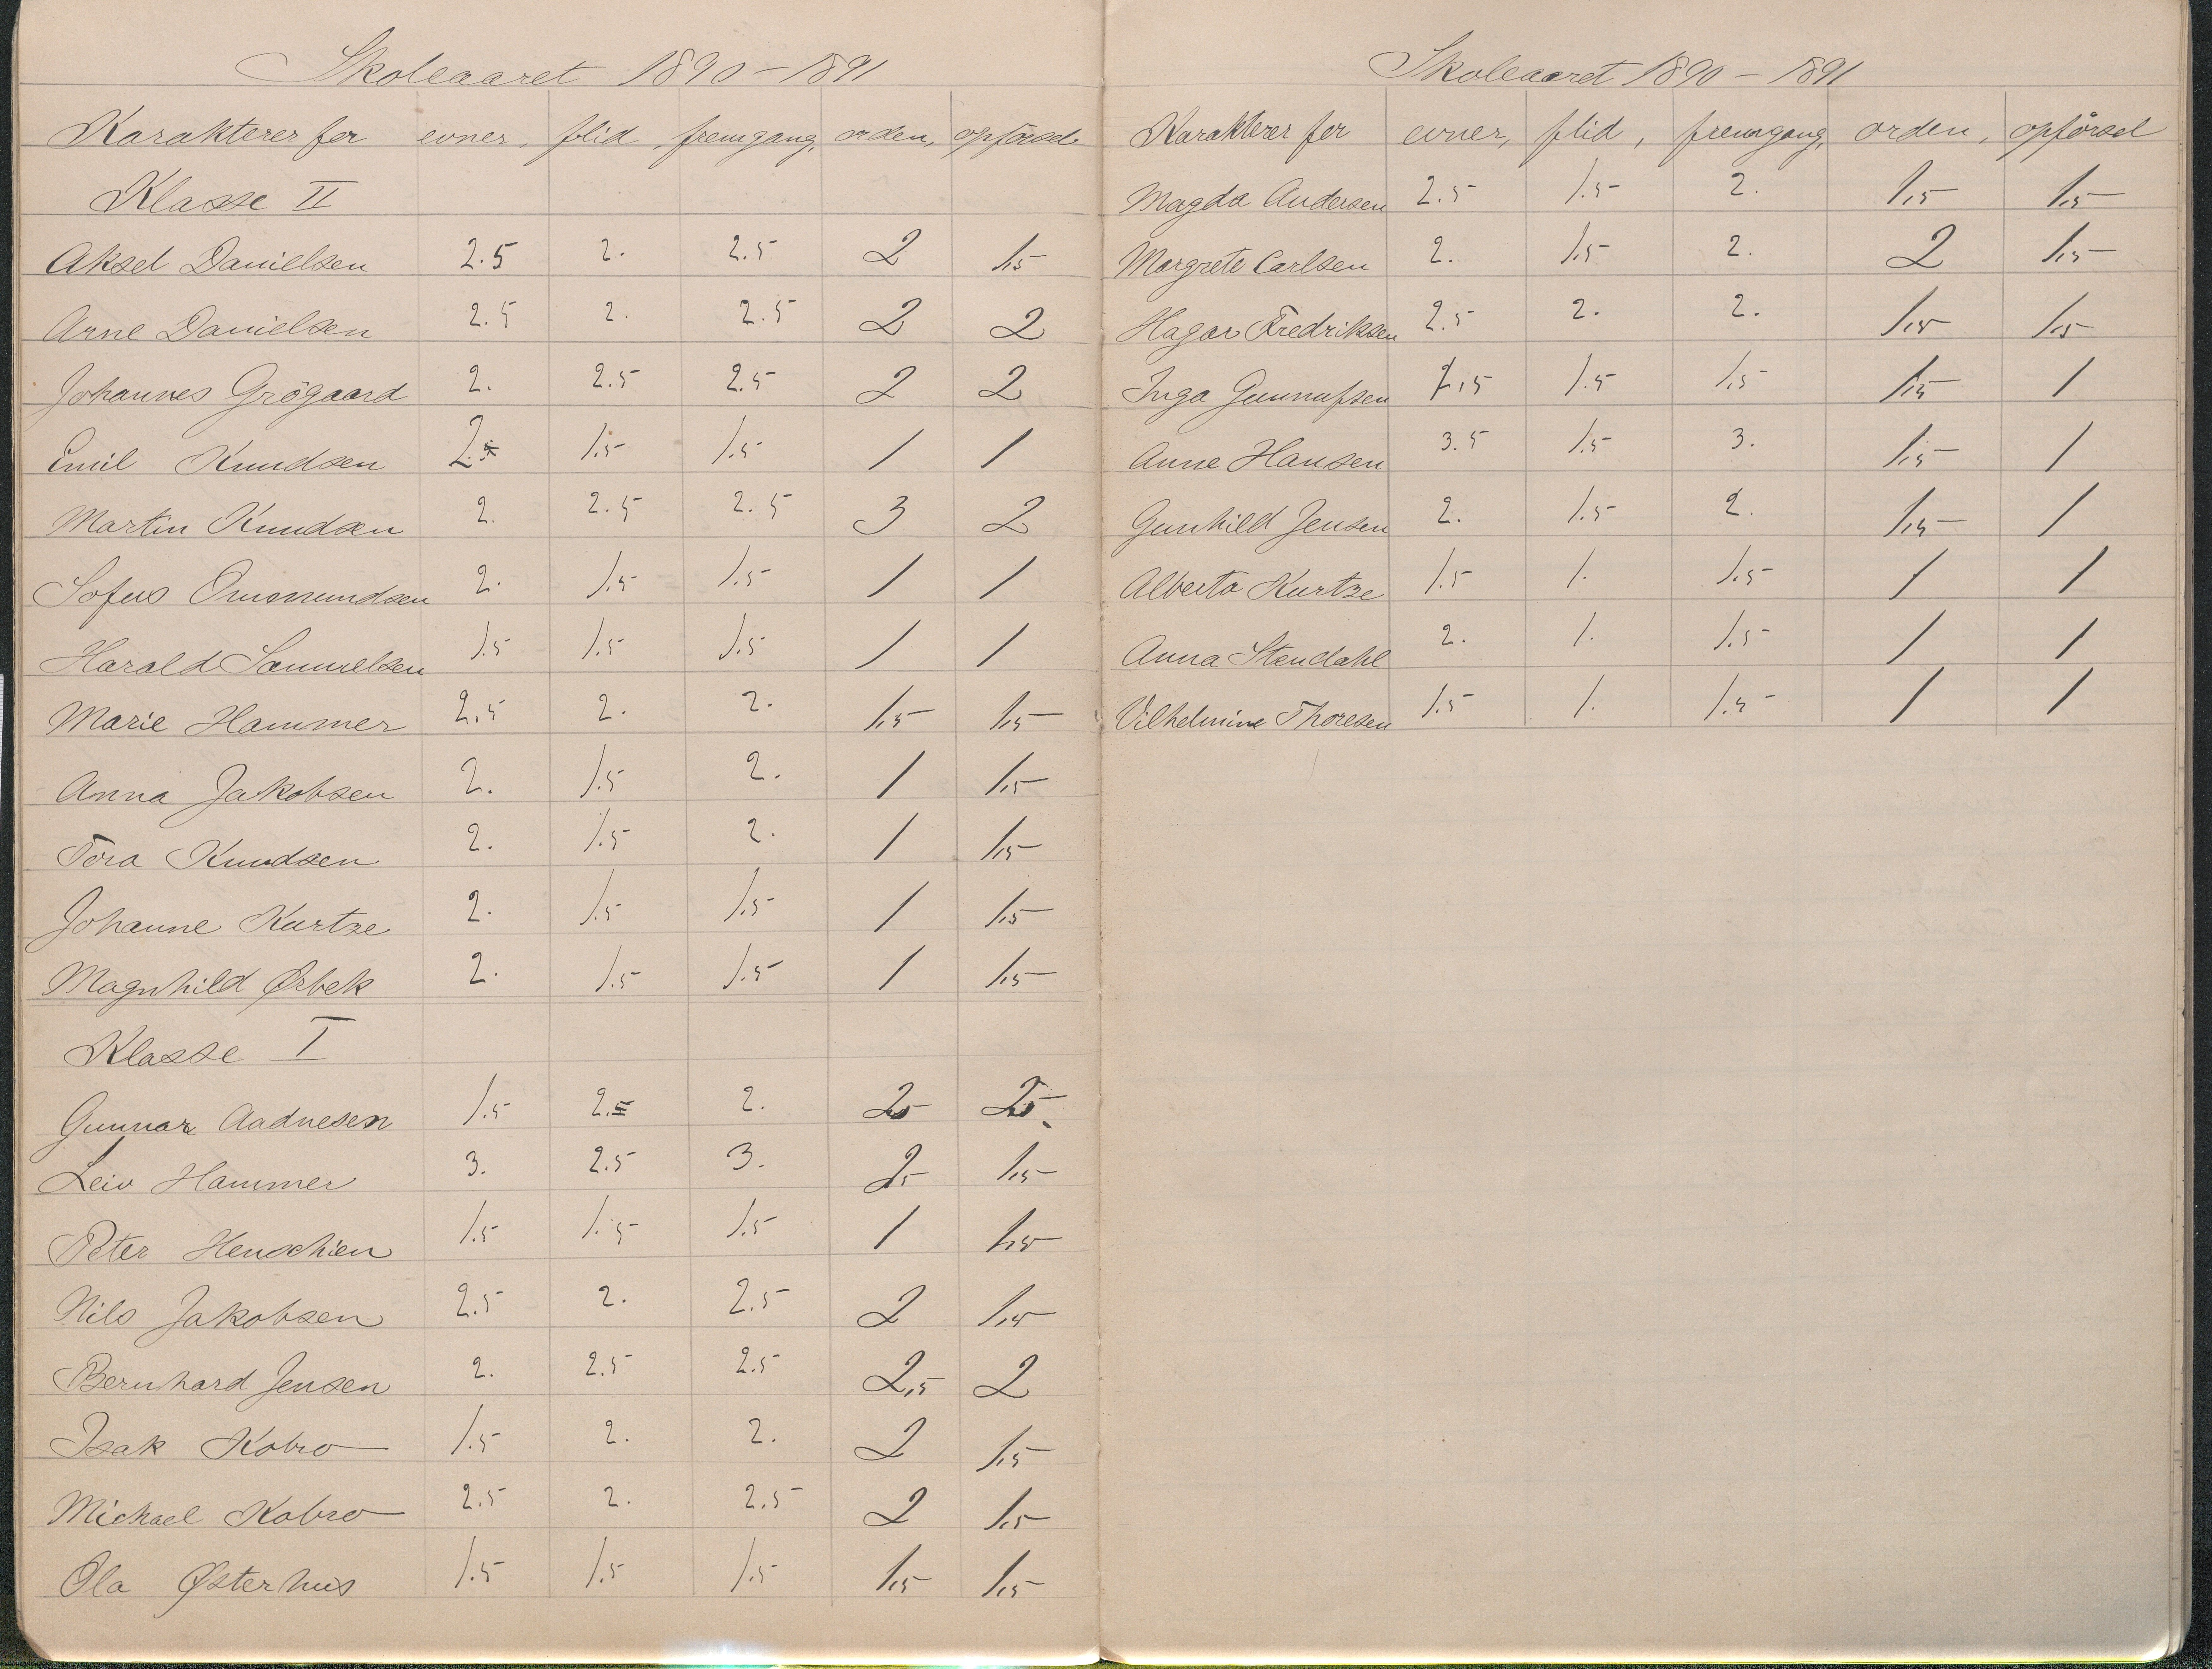 Skoleaaret 1890-1891
Karakterer for evner, flid, fremgang, orden, opförsel
Klasse II
Aksel Danielsen 2.5 2. 2.5 2 1,5
Arne Danielsen 2.5 2. 2.5 2 2
Johannes Grögaard 2. 2.5 2.5 2 2
Emil Knudsen 2. 1.5 1.5 1 1
Martin Knudsen 2. 2.5 2.5 3 2
Sofus Omsmundsen 2. 1.5 1.5 1 1
Harald Samuelsen 1.5 1.5 1.5 1 1
Marie Hammer 2,5 2. 2. 1,5 1,5
Anna Jakobsen 2. 1.5 2. 1 1,5
Tora Knudsen 2. 1.5 2. 1 1,5
Johanne Kurtze 2. 1.5 1.5 1 1,5
Magnhild Ørbek 2. 1.5 1.5 1 1,5
Klasse I
Gunnar Aadnesen 1.5 2.5 2. 25 25
Leiv Hammer 3. 2.5 3. 25 1,5
Peter Henschien 1.5 1.5 1.5 1 1,5
Nils Jakobsen 2.5 2. 2.5 2 1,5
Bernhard Jensen 2. 2.5 2.5 2,5 2
Isak Kobro 1.5 2. 2. 2 1,5
Michael Kobro 2.5 2. 2,5 2 1,5
Ola Østerhus 1.5 1.5 1.5 1,5 1,5
Skoleaaret 1890-1891
Karakterer for evner, flid, fremgang, orden, opförsel
Magda Andersen 2.5 1.5 2. 1,5 1,5
Margrete Carlsen 2. 1.5 2. 2 1,5
Hagar Fredriksen 2.5 2. 2. 1,5 1,5
Inga Gunnufsen 2,5 1.5 1.5 1,5 1
Anne Hansen 3.5 1.5 3. 1,5 1
Gunhild Jensen 2. 1.5 2. 1,5 1
Alberta Kurtze 1.5 1. 1.5 1 1
Anna Stendahl 2. 1. 1.5 1 1
Vilhelmine Thoresen 1.5 1. 1.5 1 1